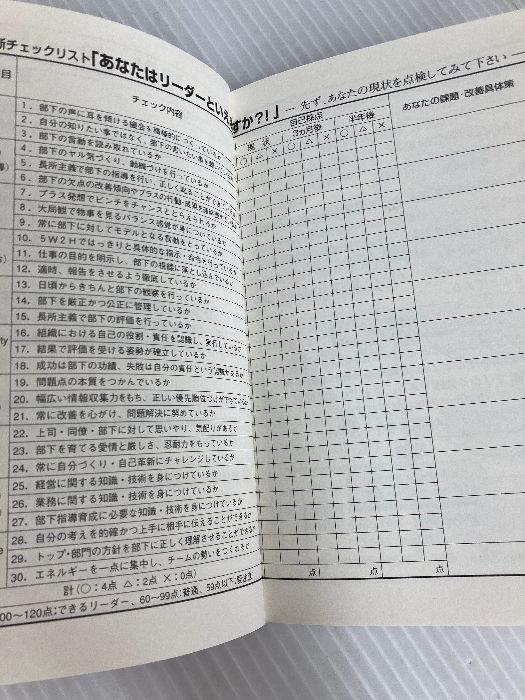 断チェックリスト「あなたはリーダーといえますか?!」 … 先ず、あなたの現状を点検してみて下さい
目
チェック内容
自己採点
現 状
3カ月後
半年後
○ △ × ○ △ × ○ △ ×
あなたの課題・改善具体策
1. 部下の声に耳を傾ける機会を積極的につくっている
2. 自分の知りたい事ではなく、部下の言いたい事を
3. 部下の言動を読み取れているか
4. 部下のヤル気づくり、動機づけを行っているか
5. 長所主義で部下の指導を行い、正しく
6. 部下の欠点の改善傾向やプラスの行動・成果を
7. プラス発想でピンチをチャンスととらえられるか
8. 大局観で物事を見るバランス感覚が身に
9. 常に部下に対してモデルとなる言動をとっているか
10. 5W2Hではっきりと具体的な指示・命令を行っているか
11. 仕事の目的を明示し、部下の視線に落とし込んで
12. 適時、報告をさせるよう徹底しているか
13. 日頃からきちんと部下の観察を行っているか
14. 部下を厳正かつ公正に管理しているか
15. 長所主義で部下の評価を行っているか
16. 組織における自己の役割・責任を認識し、実行しているか
17. 結果で評価を受ける姿勢が確立しているか
18. 成功は部下の功績、失敗は自分の責任という認識があるか
19. 問題点の本質をつかんでいるか
20. 幅広い情報収集力をもち、正しい優先順位づけができているか
21. 常に改善を心がけ、問題解決に努めているか
22. 上司・同僚・部下に対して思いやり、気配りがあるか
23. 部下を育てる愛情と厳しさ、忍耐力をもっているか
24. 常に自分づくり・自己革新にチャレンジしているか
25. 経営に関する知識・技術を身につけているか
26. 業務に関する知識・技術を身につけているか
27. 部下指導育成に必要な知識・技術を身につけているか
28. 自分の考えを的確かつ上手に相手に伝えることができるか
29. トップ・部門の方針を部下に正しく理解させることができるか
30. エネルギーを一点に集中し、チームの勢いをつくれるか
計(○:4点 △:2点 ×:0点)
点 点 点
00〜120点:できるリーダー、60〜99点:普通、59点以下: